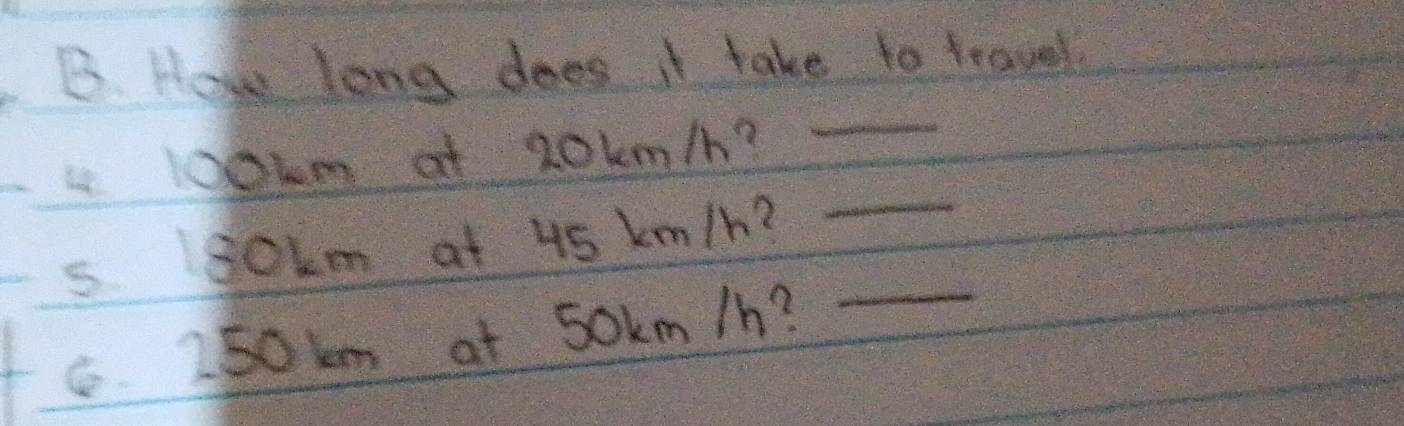 B. How long does it take to travel.
4. 100km at 20km/h? ___
5. 180km at 45 km/h? ___
6. 250km at 50km/h? ___